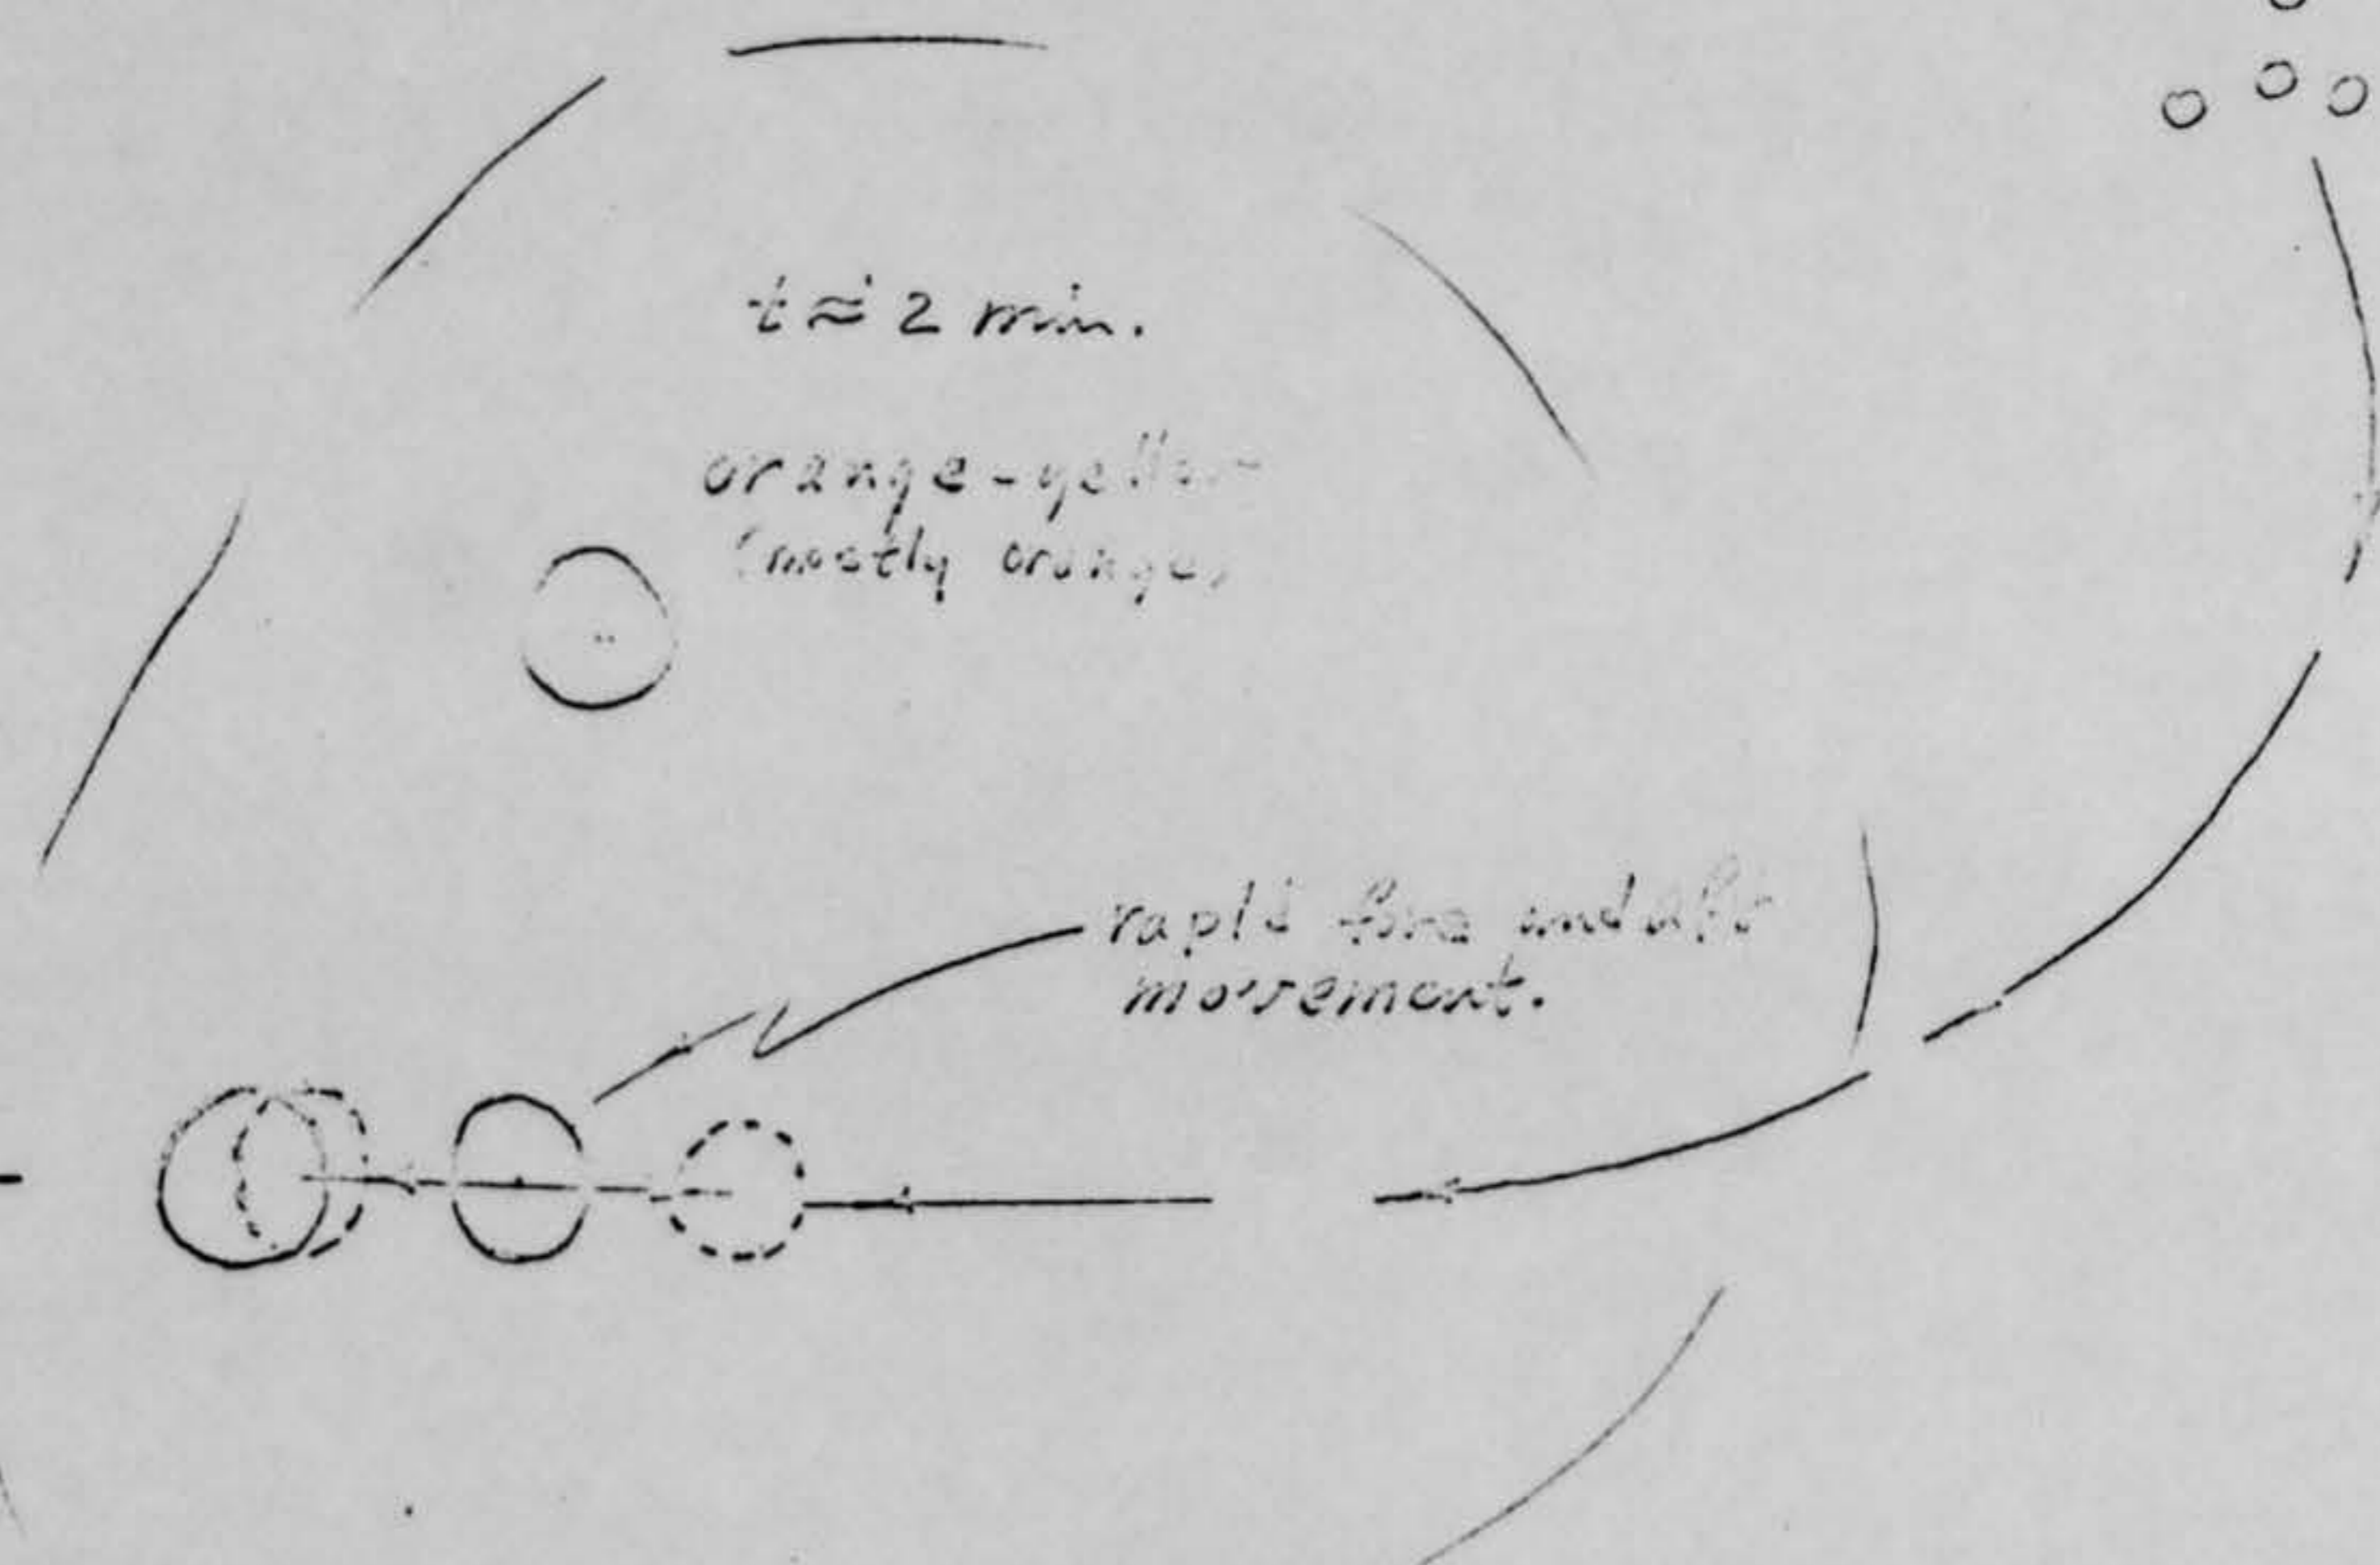 t ≈ 2 min.
orange-yellow
(mostly orange)
rapid fore and aft
movement.